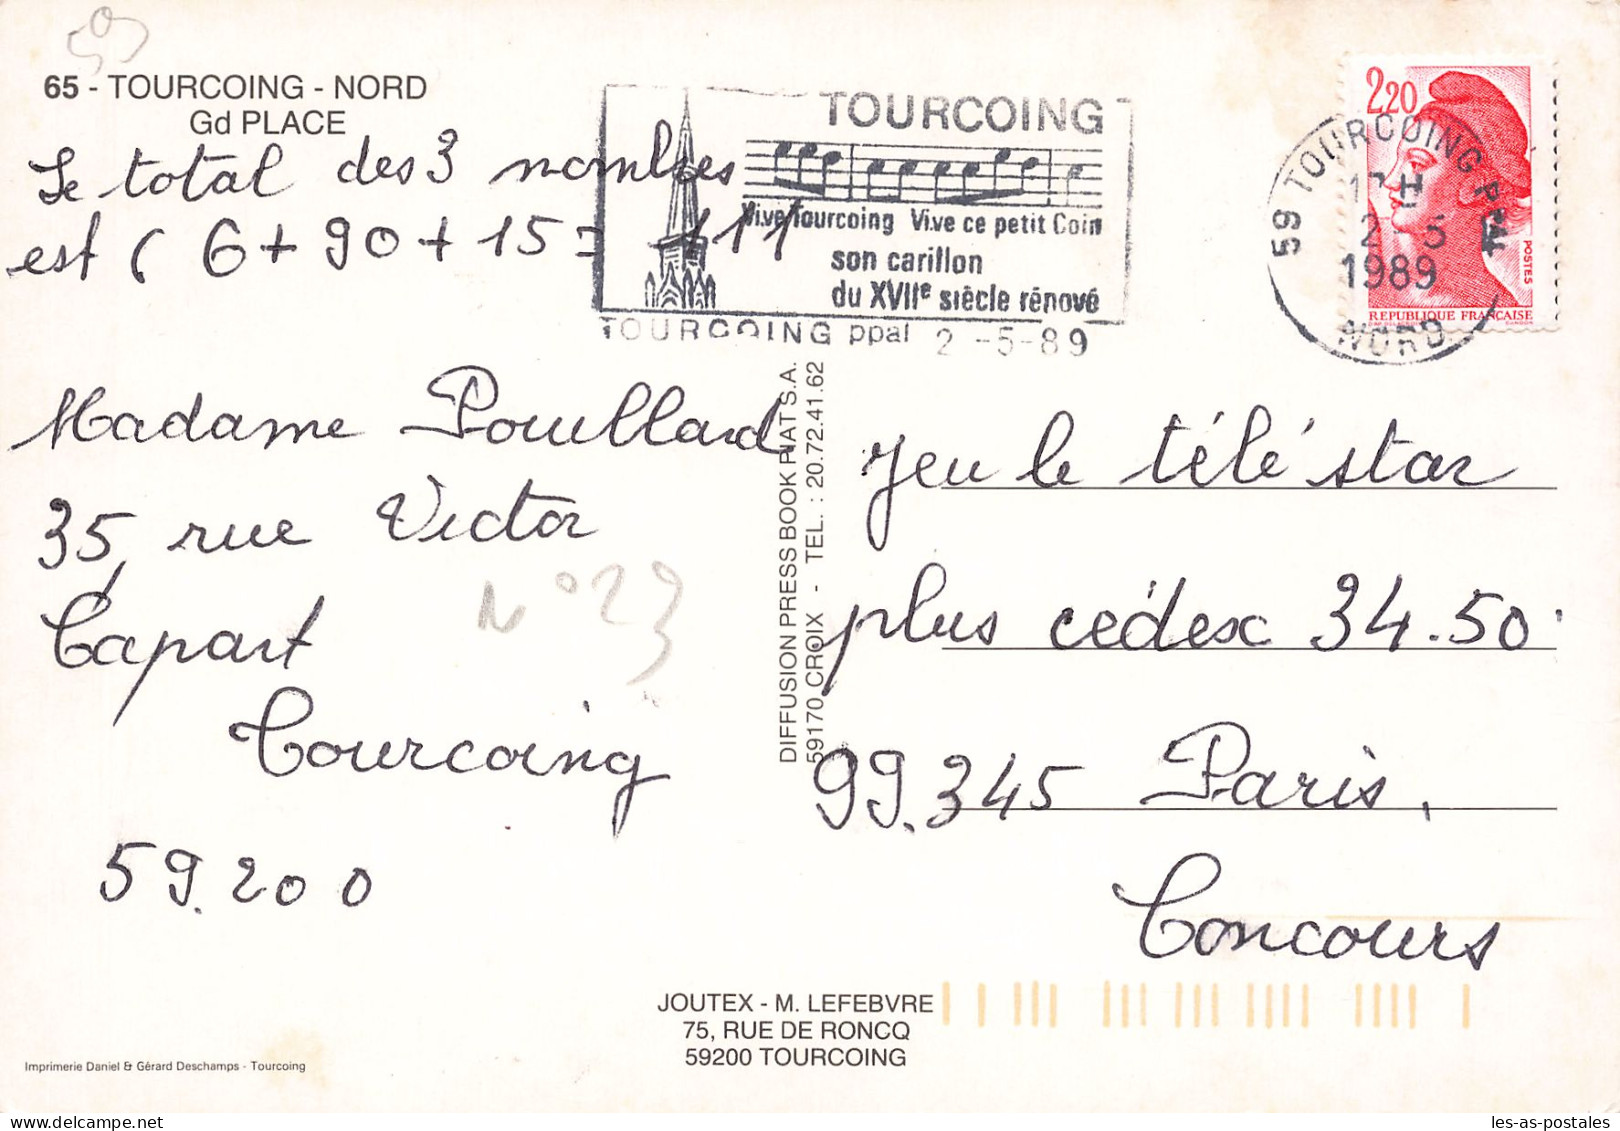 65 - TOURCOING - NORD
Gd PLACE
Le total des 3 nombres
est ( 6 + 90 + 15 = 111
TOURCOING
Vive Tourcoing Vive ce petit Coin
son carillon
du XVIIe siècle rénové
TOURCOING ppal 2 -5-89
2,20
POSTES
REPUBLIQUE FRANÇAISE
59 TOURCOING PPAL
2 - 5
1989
NORD
Madame Pouillard
35, rue Victor
Capart
Tourcoing
59.200
N° 23
DIFFUSION PRESS BOOK PIAT S.A.
59170 CROIX - TEL. : 20.72.41.62
Jeu le télé star
plus cédesc 34.50
99.345 Paris,
Concours
JOUTEX - M. LEFEBVRE
75, RUE DE RONCQ
59200 TOURCOING
Imprimerie Daniel & Gérard Deschamps - Tourcoing
les-as-postales